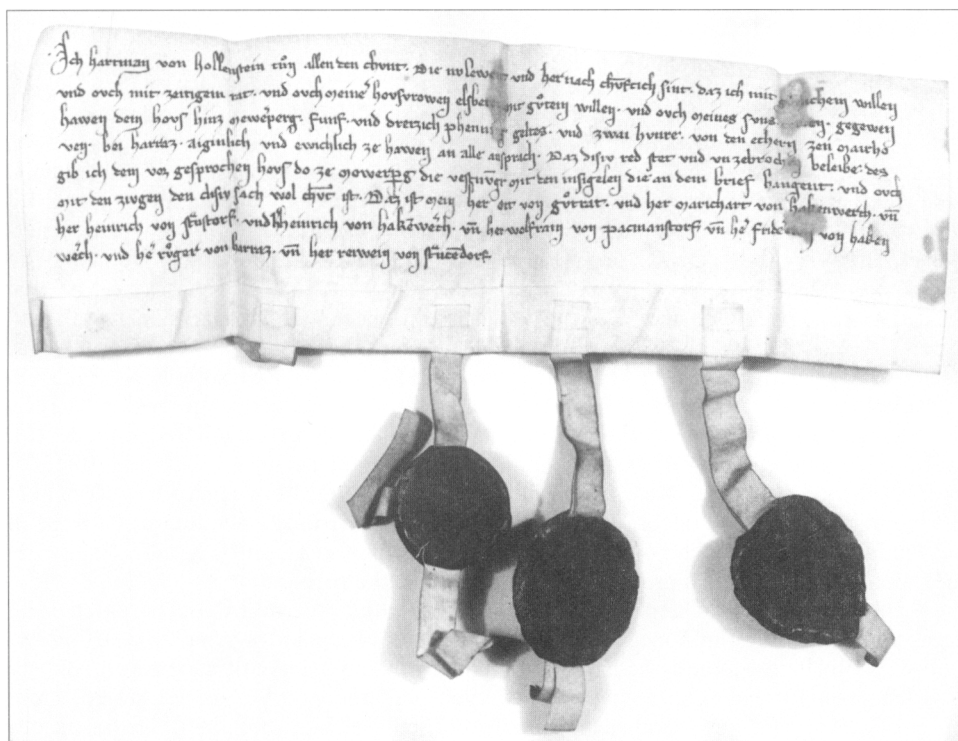 Ich hartman von hollenstein tuͦn allen den chunt. Die nu lewent und her nach chvnftich sint. daz ich mit willen
und ovch mit zeitigem rat. und ovch meineꝛ hovsvrowen elsbeten mit guͦtem willen. und ovch meines gegewen
hawen dem hovs hinz mewerperg. funf. und dreizich phenning geltes. und zwai hvnre. von den echern zen maicho
ven. bei harraz. aiginlich und ewichlich ze hawen an alle ansprach. Daz disiv red stet und vnzebrochen beleibe. des
gib ich dem vor gesprochen hovs do ze mowerperg die vestnvnge mit den insigelen die an dem brief hangent. und ovch
mit den zivgen den disiv sach wol chvnt ist. Daz ist mein her ott von guͦtrat. und her marichart von hakenwerch. vn̄
her heinrich von stostorf. und h̄ heinrich von hakēwech. vn̄ her wolfram von pacmanstorf vn̄ he͛ friderich von haken
we͛ch. und he͛ ruͦger von harraz. vn̄ her rerwein von strūcēdorf.